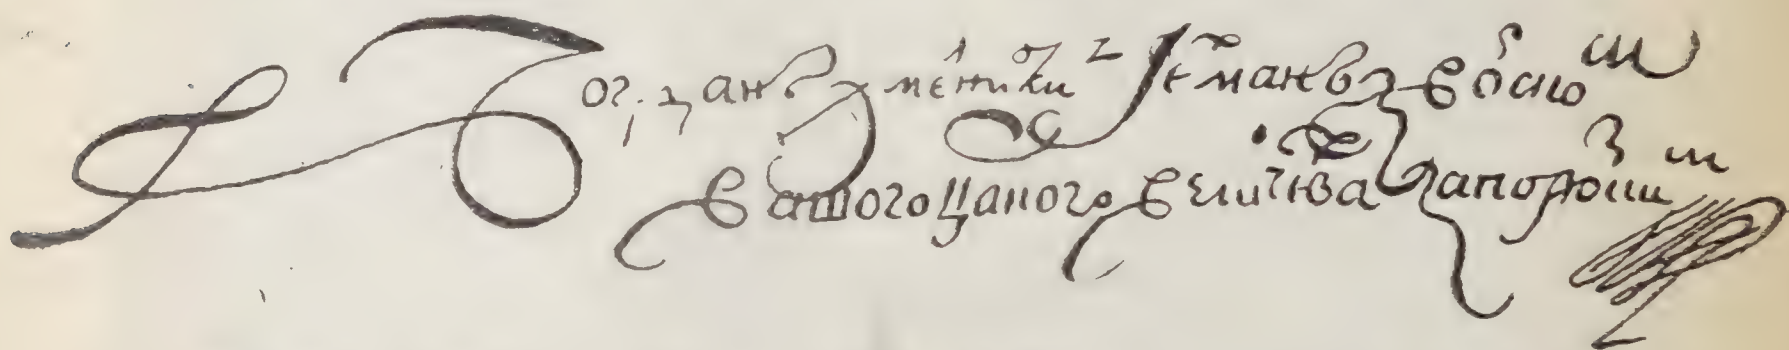 Богданъ Хмелницкии Гетманъ з Войском
Вашого Царского Величства Запорозким